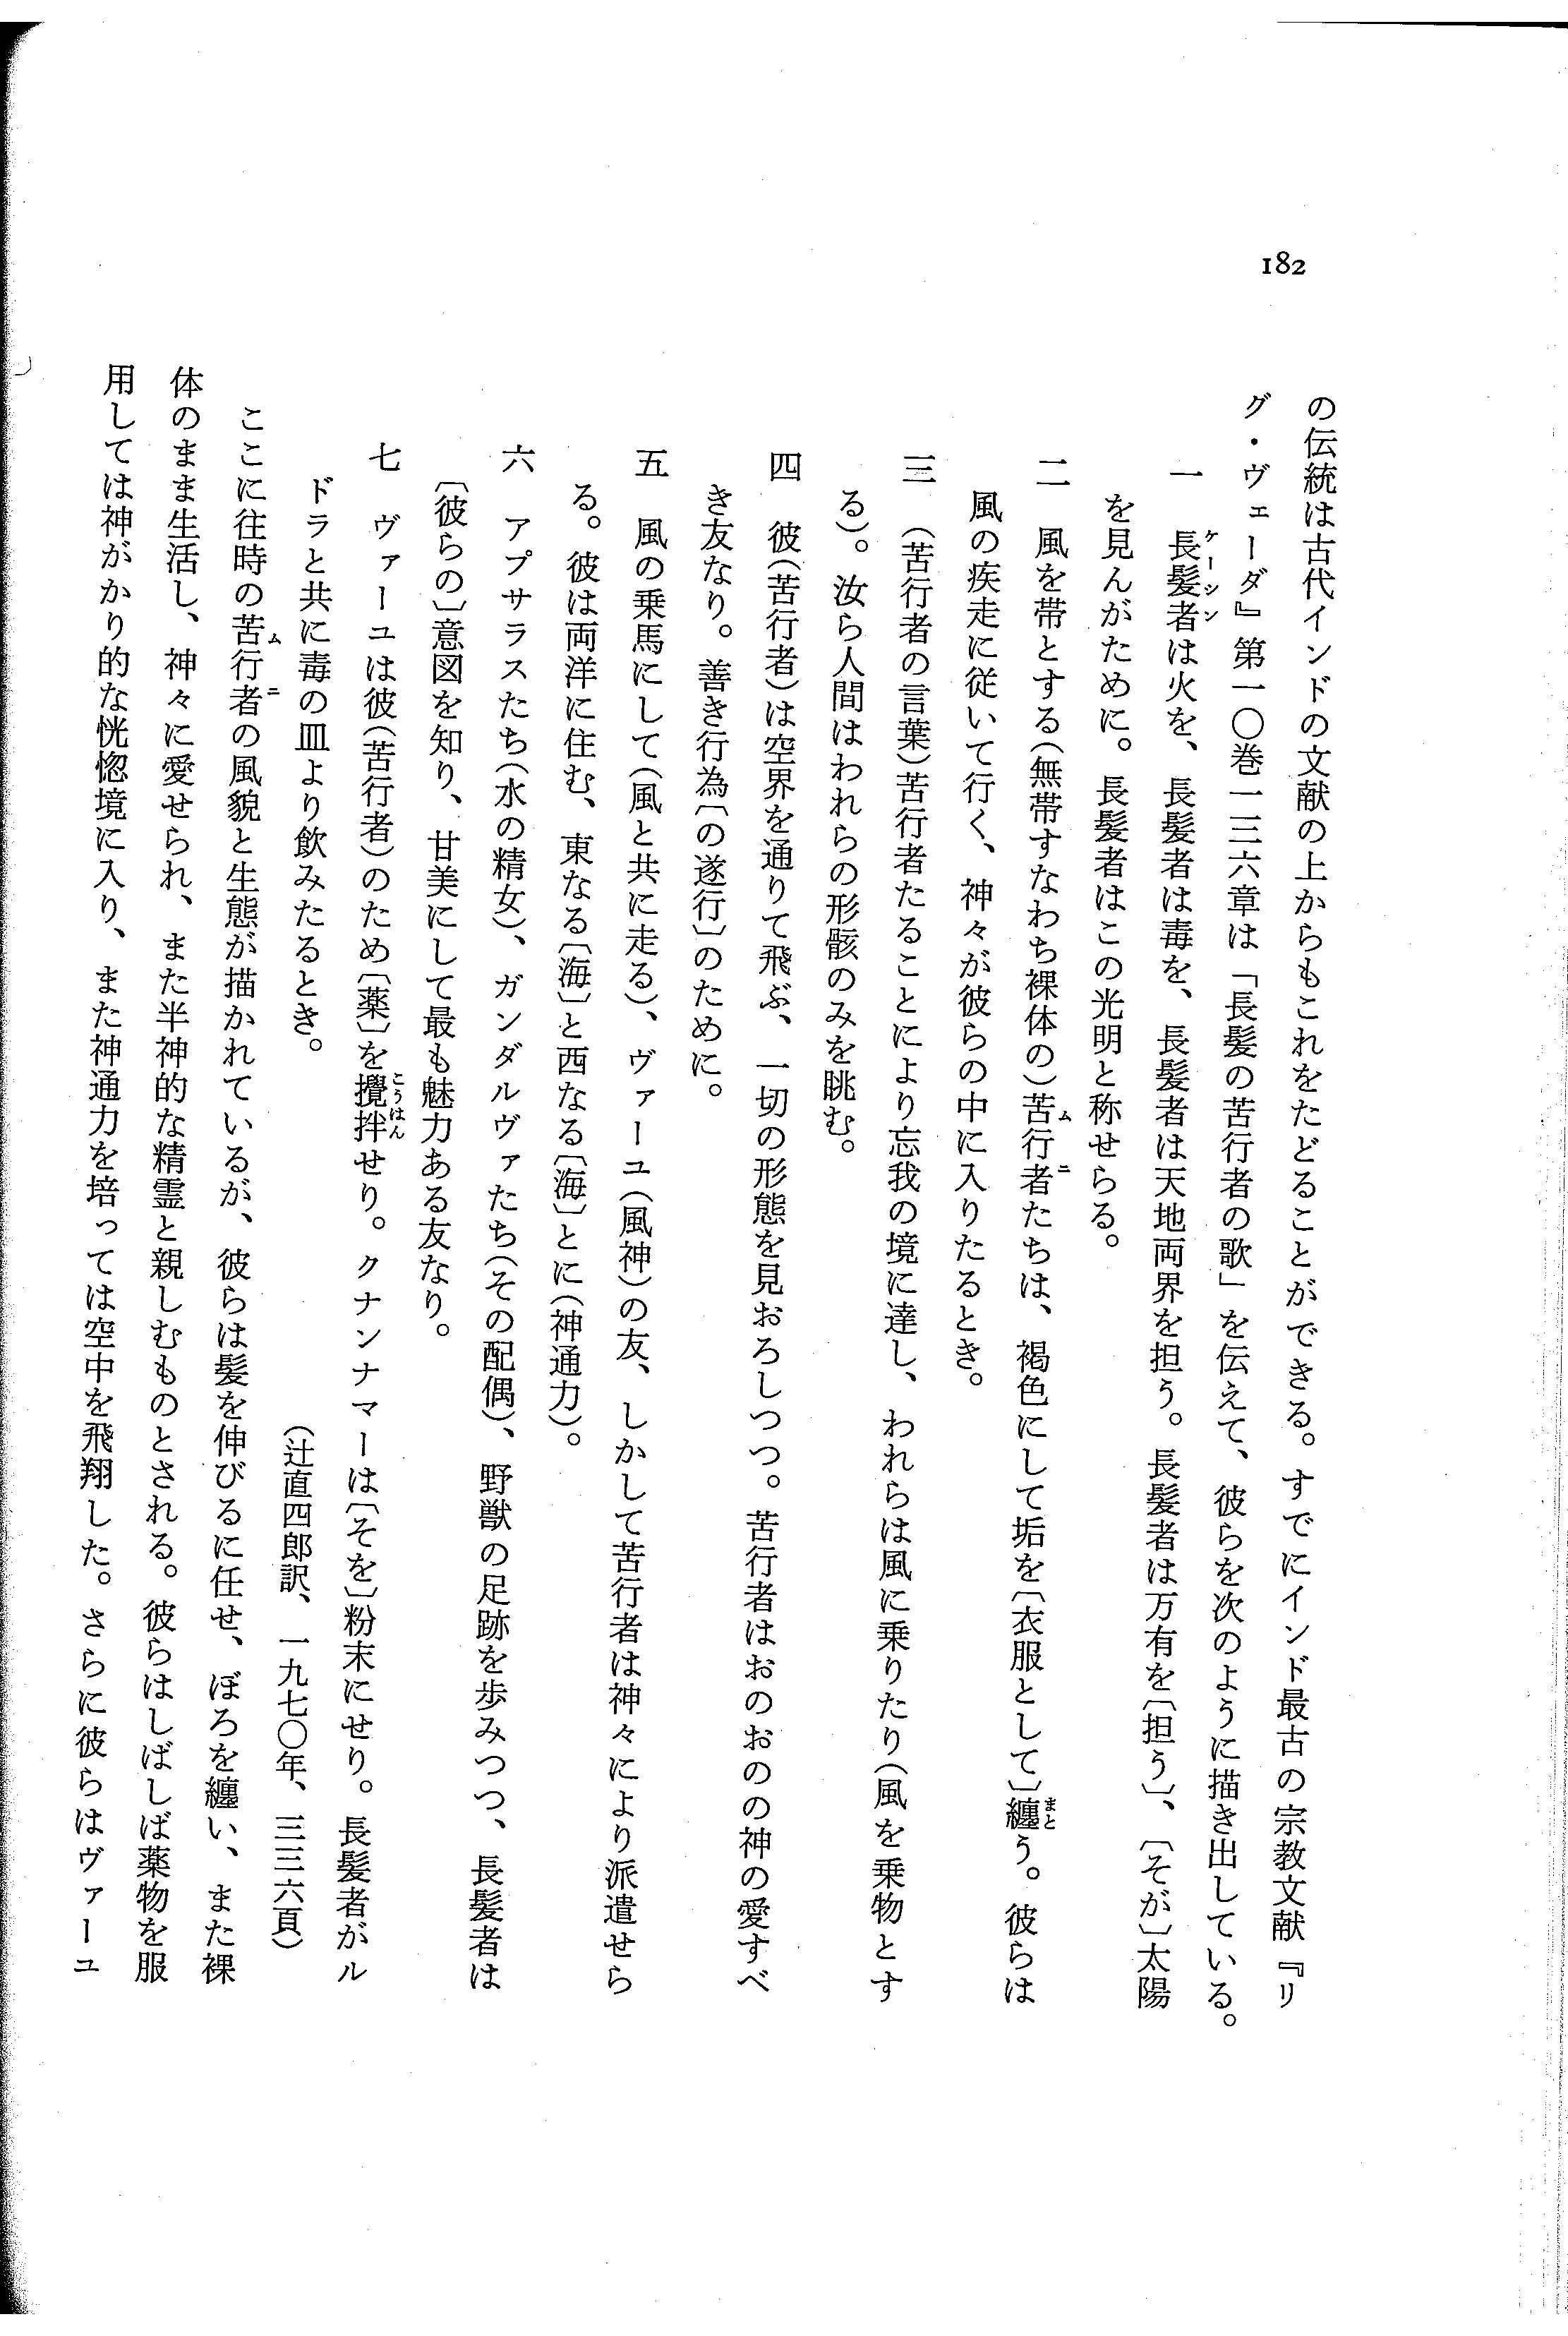 182
の伝統は古代インドの文献の上からもこれをたどることができる。すでにインド最古の宗教文献『リ
グ・ヴェーダ』第一〇巻一三六章は「長髪の苦行者の歌」を伝えて、彼らを次のように描き出している。
一　長髪者は火を、長髪者は毒を、長髪者は天地両界を担う。長髪者は万有を〔担う〕、〔そが〕太陽
を見んがために。長髪者はこの光明と称せらる。
二　風を帯とする（無帯すなわち裸体の）苦行者たちは、褐色にして垢を〔衣服として〕纏う。彼らは
風の疾走に従いて行く、神々が彼らの中に入りたるとき。
三　（苦行者の言葉）苦行者たることにより忘我の境に達し、われらは風に乗りたり（風を乗物とす
る）。汝ら人間はわれらの形骸のみを眺む。
四　彼（苦行者）は空界を通りて飛ぶ、一切の形態を見おろしつつ。苦行者はおのおのの神の愛すべ
き友なり。善き行為〔の遂行〕のために。
五　風の乗馬にして（風と共に走る）、ヴァーユ（風神）の友、しかして苦行者は神々により派遣せら
る。彼は両洋に住む、東なる〔海〕と西なる〔海〕とに（神通力）。
六　アプサラスたち（水の精女）、ガンダルヴァたち（その配偶）、野獣の足跡を歩みつつ、長髪者は
〔彼らの〕意図を知り、甘美にして最も魅力ある友なり。
七　ヴァーユは彼（苦行者）のため〔薬〕を攪拌せり。クナンナマーは〔そを〕粉末にせり。長髪者がル
ドラと共に毒の皿より飲みたるとき。
（辻直四郎訳、一九七〇年、三三六頁）
ここに往時の苦行者の風貌と生態が描かれているが、彼らは髪を伸びるに任せ、ぼろを纏い、また裸
体のまま生活し、神々に愛せられ、また半神的な精霊と親しむものとされる。彼らはしばしば薬物を服
用しては神がかり的な恍惚境に入り、また神通力を培っては空中を飛翔した。さらに彼らはヴァーユ